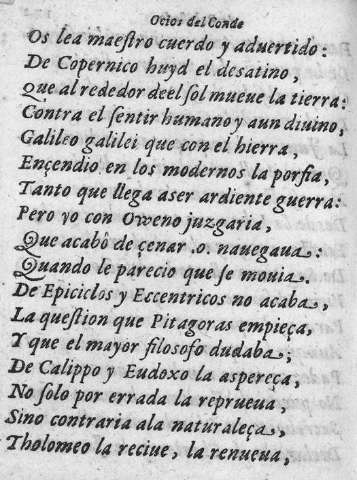 Ocios del Conde
Os lea maeſtro cuerdo y aduertido:
De Copernico huyd el deſatino,
Que al rededor deel ſol mueue la tierra:
Contra el ſentir humano y aun diuino,
Galileo galilei que con el hierra,
Ençendio en los modernos la porfia,
Tanto que llega aser ardiente guerra:
Pero yo con Oweno juzgaria,
Que acabò de çenar .o. nauegaua:
Quando le parecio que ſe mouia.
De Epiciclos y Eccentricos no acaba,
La queſtion que Pitagoras empieça,
Y que el mayor filoſofo dudaba;
De Calippo y Eudoxo la aspereça,
No ſolo por errada la reprueua,
Sino contraria ala naturaleça,
Tholomeo la reciue, la renueua,